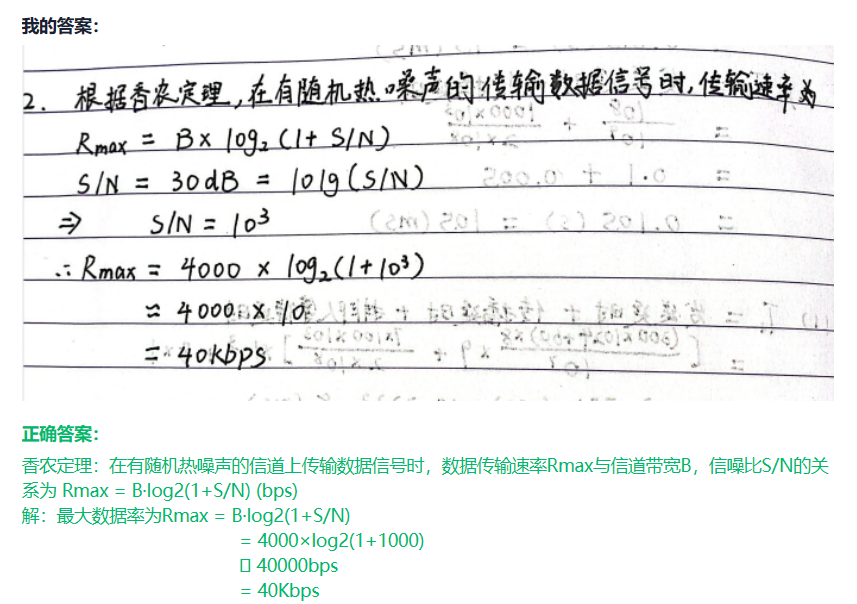 我的答案：
2. 根据香农定理，在有随机热噪声的传输数据信号时，传输速率为
Rmax = B× log₂(1+ S/N)
S/N = 30dB = 10lg(S/N)
⇒ S/N = 10³
∴ Rmax = 4000 × log₂(1+10³)
≈ 4000 × 10
= 40kbps
正确答案：
香农定理：在有随机热噪声的信道上传输数据信号时，数据传输速率Rmax与信道带宽B，信噪比S/N的关
系为 Rmax = B·log2(1+S/N) (bps)
解：最大数据率为Rmax = B·log2(1+S/N)
= 4000×log2(1+1000)
▯ 40000bps
= 40Kbps